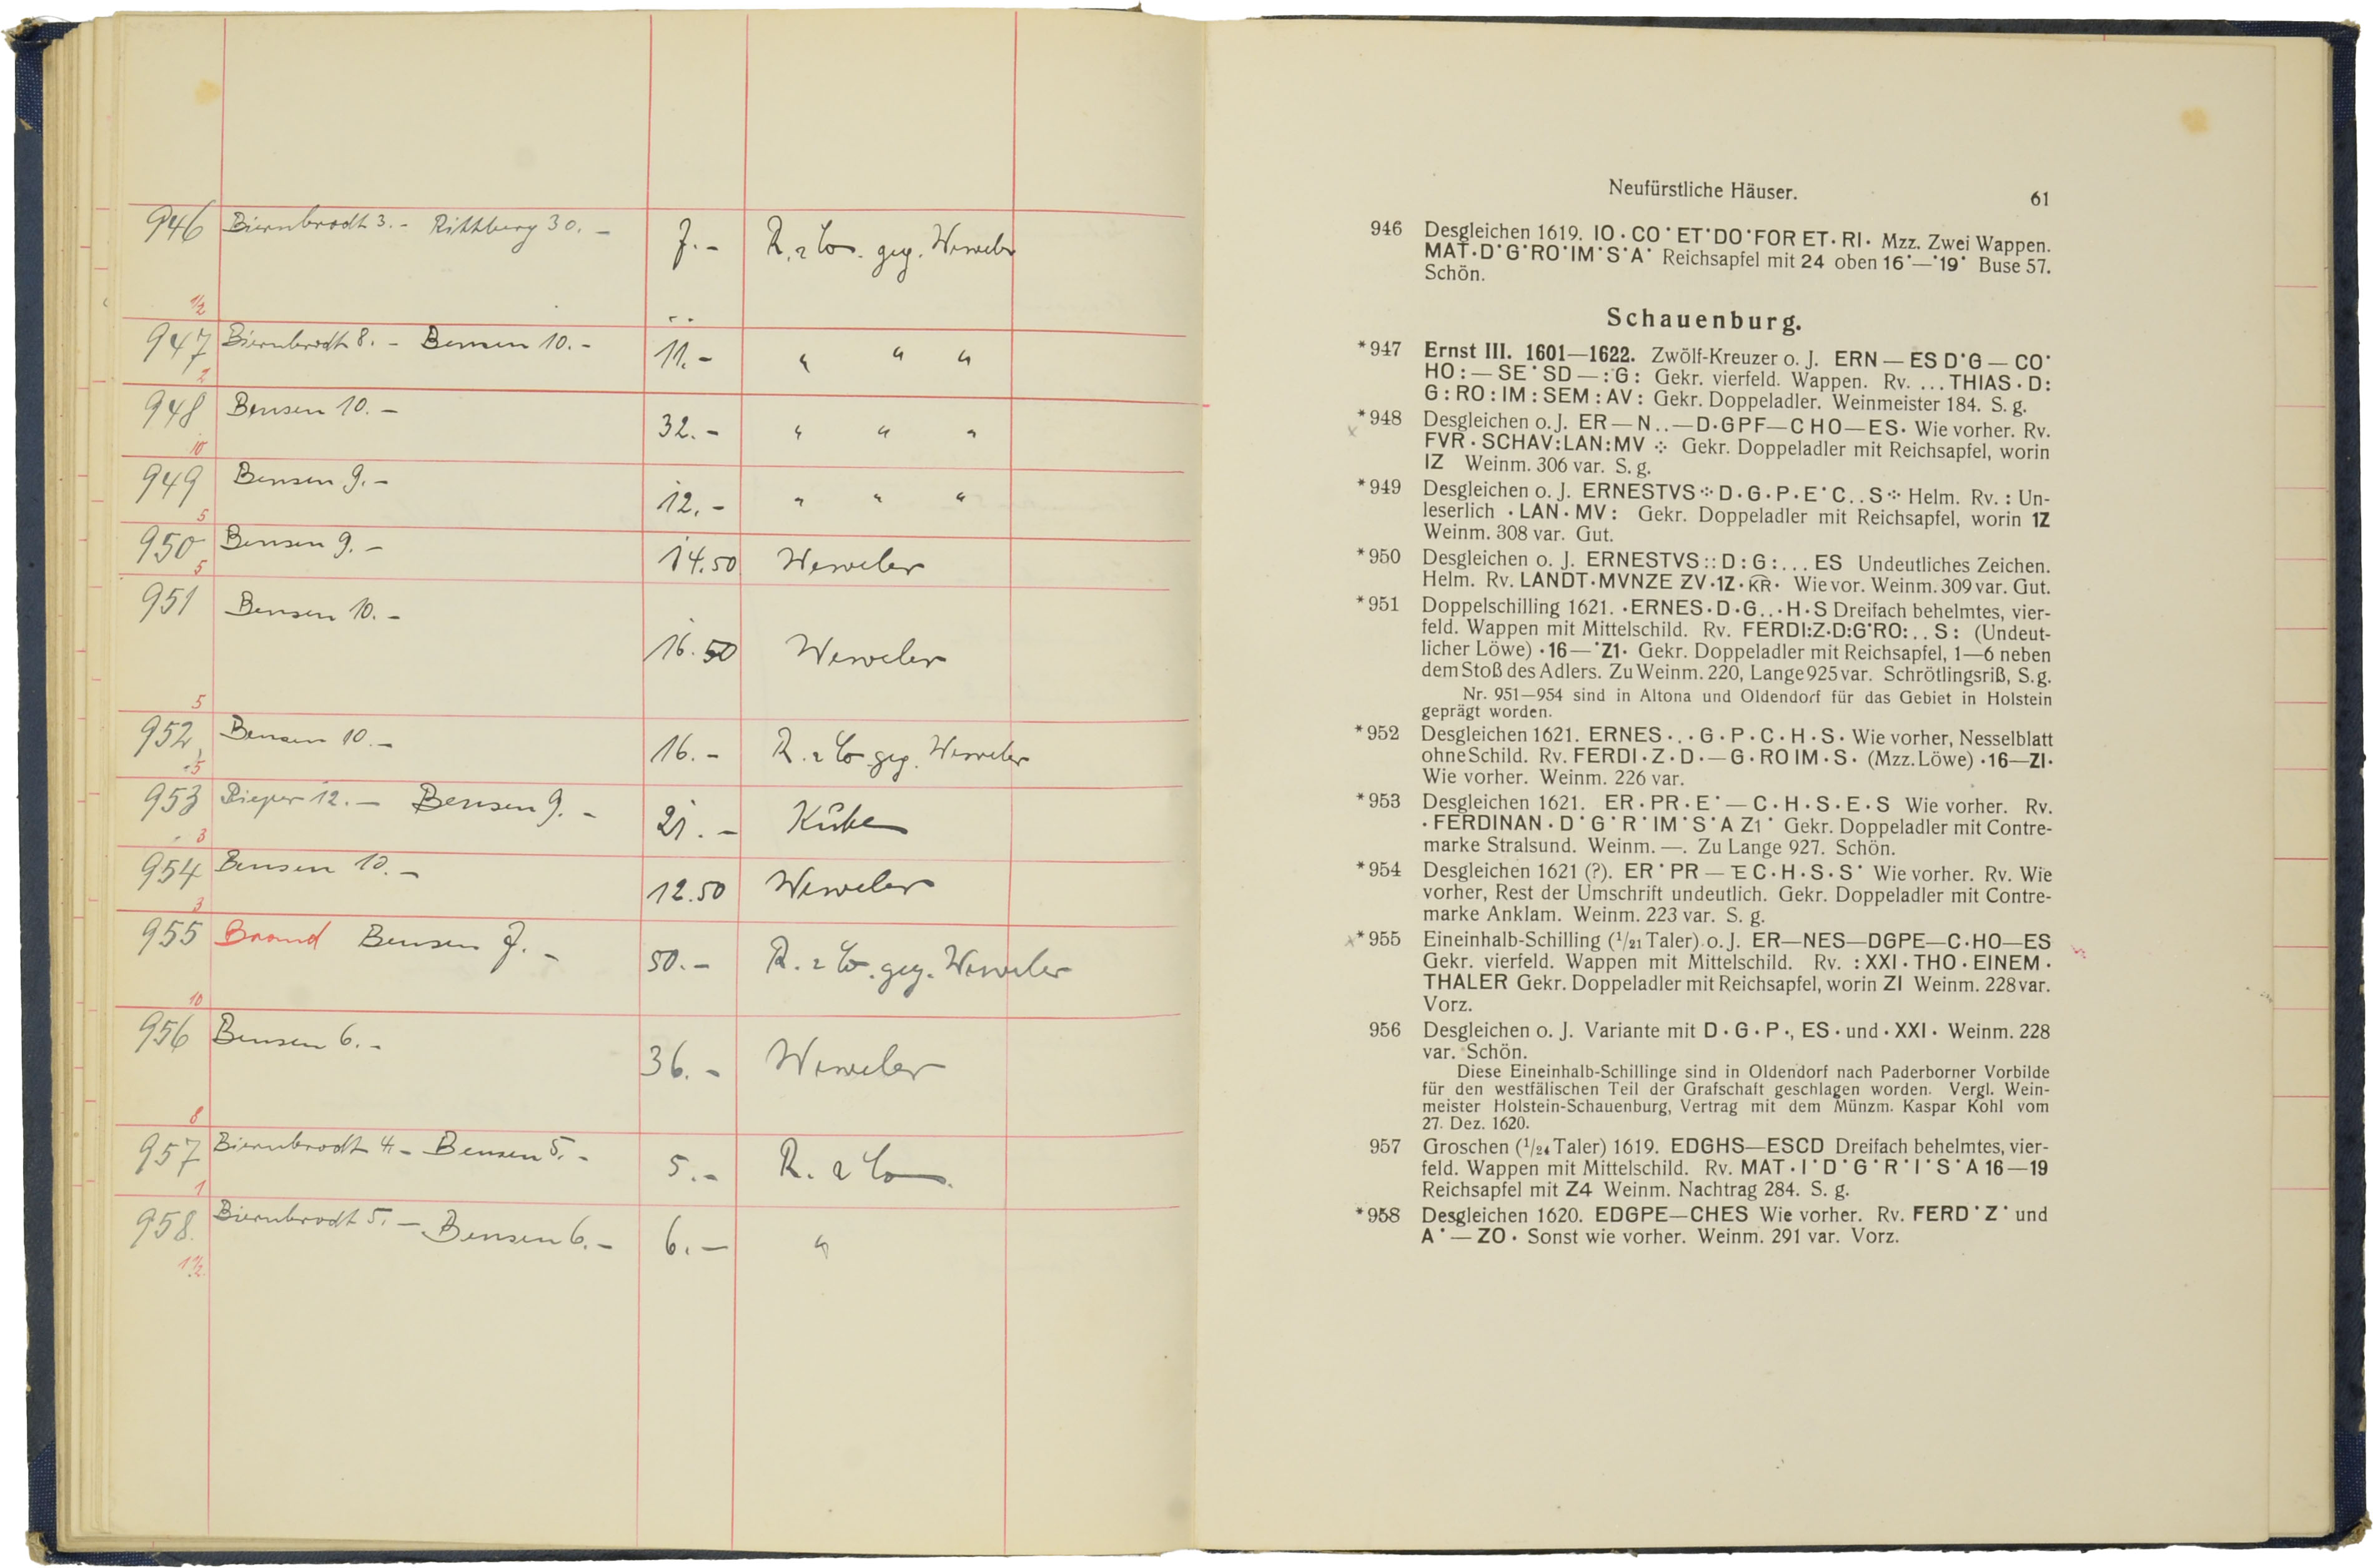 946 Biernbrodt 3.- Rittberg 30.- 7.- R. & Co. geg. Weweler
1/2
947 Biernbrodt 8.- Bensen 10.- 11.- " " "
2
948 Bensen 10.- 32.- " " "
10
949 Bensen 9.- 12.- " " "
5
950 Bensen 9.- 14.50 Weweler
5
951 Bensen 10.- 16.50 Weweler
5
952 Bensen 10.- 16.- R. & Co geg. Weweler
5
953 Pieper 12.- Bensen 9.- 21.-
3
954 Bensen 10.- 12.50 Weweler
3
955 Brand Bensen 7.- 50.- R. & Co. geg. Weweler
10
956 Bensen 6.- 36.- Weweler
8
957 Biernbrodt 4.- Bensen 5.- 5.- R. & Co.
1
958. Biernbrodt 5.- Bensen 6.- 6.- "
1 1/2
Neufürstliche Häuser. 61
946 Desgleichen 1619. IO · CO˙ET˙DO˙FOR ET · RI · Mzz. Zwei Wappen.
MAT·D˙G˙RO˙IM˙S˙A˙ Reichsapfel mit 24 oben 16˙—˙19˙ Buse 57.
Schön.
Schauenburg.
*947 Ernst III. 1601—1622. Zwölf-Kreuzer o. J. ERN — ES D˙G — CO˙
HO : — SE˙SD — :˙G : Gekr. vierfeld. Wappen. Rv. ... THIAS · D:
G : RO : IM : SEM : AV : Gekr. Doppeladler. Weinmeister 184. S. g.
*948 Desgleichen o. J. ER — N . . — D·GPF—C HO—ES· Wie vorher. Rv.
FVR · SCHAV:LAN:MV ⁘ Gekr. Doppeladler mit Reichsapfel, worin
IZ Weinm. 306 var. S. g.
*949 Desgleichen o. J. ERNESTVS ⁘ D · G · P · E˙C . . S ⁘ Helm. Rv. : Un-
leserlich · LAN · MV : Gekr. Doppeladler mit Reichsapfel, worin 1Z
Weinm. 308 var. Gut.
*950 Desgleichen o. J. ERNESTVS :: D : G : . . . ES Undeutliches Zeichen.
Helm. Rv. LANDT·MVNZE ZV·1Z·KR· Wie vor. Weinm. 309 var. Gut.
*951 Doppelschilling 1621. ·ERNES·D·G . . ·H·S Dreifach behelmtes, vier-
feld. Wappen mit Mittelschild. Rv. FERDI:Z·D:G˙RO: . . S : (Undeut-
licher Löwe) ·16—˙Z1· Gekr. Doppeladler mit Reichsapfel, 1—6 neben
dem Stoß des Adlers. Zu Weinm. 220, Lange 925 var. Schrötlingsriß, S. g.
Nr. 951—954 sind in Altona und Oldendorf für das Gebiet in Holstein
geprägt worden.
*952 Desgleichen 1621. ERNES · . · G · P · C · H · S · Wie vorher, Nesselblatt
ohne Schild. Rv. FERDI · Z · D · — G · RO IM · S · (Mzz. Löwe) ·16—ZI·
Wie vorher. Weinm. 226 var.
*953 Desgleichen 1621. ER · PR · E˙ — C · H · S · E · S Wie vorher. Rv.
· FERDINAN · D˙G˙R˙IM˙S˙A Z1˙ Gekr. Doppeladler mit Contre-
marke Stralsund. Weinm. —. Zu Lange 927. Schön.
*954 Desgleichen 1621 (?). ER˙PR — E C · H · S · S˙ Wie vorher. Rv. Wie
vorher, Rest der Umschrift undeutlich. Gekr. Doppeladler mit Contre-
marke Anklam. Weinm. 223 var. S. g.
*955 Eineinhalb-Schilling (1/21 Taler) o. J. ER—NES—DGPE—C·HO—ES
Gekr. vierfeld. Wappen mit Mittelschild. Rv. : XXI · THO · EINEM ·
THALER Gekr. Doppeladler mit Reichsapfel, worin ZI Weinm. 228 var.
Vorz.
956 Desgleichen o. J. Variante mit D · G · P ·, ES · und · XXI · Weinm. 228
var. Schön.
Diese Eineinhalb-Schillinge sind in Oldendorf nach Paderborner Vorbilde
für den westfälischen Teil der Grafschaft geschlagen worden. Vergl. Wein-
meister Holstein-Schauenburg, Vertrag mit dem Münzm. Kaspar Kohl vom
27. Dez. 1620.
957 Groschen (1/24 Taler) 1619. EDGHS—ESCD Dreifach behelmtes, vier-
feld. Wappen mit Mittelschild. Rv. MAT · I˙D˙G˙R˙I˙S˙A 16—19
Reichsapfel mit Z4 Weinm. Nachtrag 284. S. g.
*958 Desgleichen 1620. EDGPE—CHES Wie vorher. Rv. FERD˙Z˙ und
A˙— ZO · Sonst wie vorher. Weinm. 291 var. Vorz.